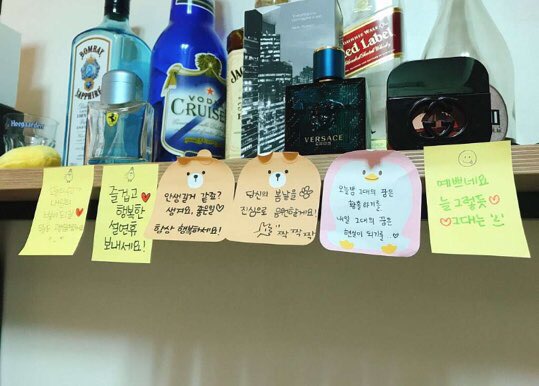 BOMBAY
SAPPHIRE
VODKA
CRUISER
JACK
JOHNNIE WALKER
Red Label
VERSACE
EROS
즐겁고
행복한
설연휴
보내세요!
인생길거 같죠?
생겨요, 좋은일
항상 행복하세요!
당신의 봄날을
진심으로 응원할게요!
짝 짝 짝
오늘밤 그대의 꿈은
황홀하기를
내일 그대의 꿈은
현실이 되기를...
예쁘네요
늘 그렇듯
그대는